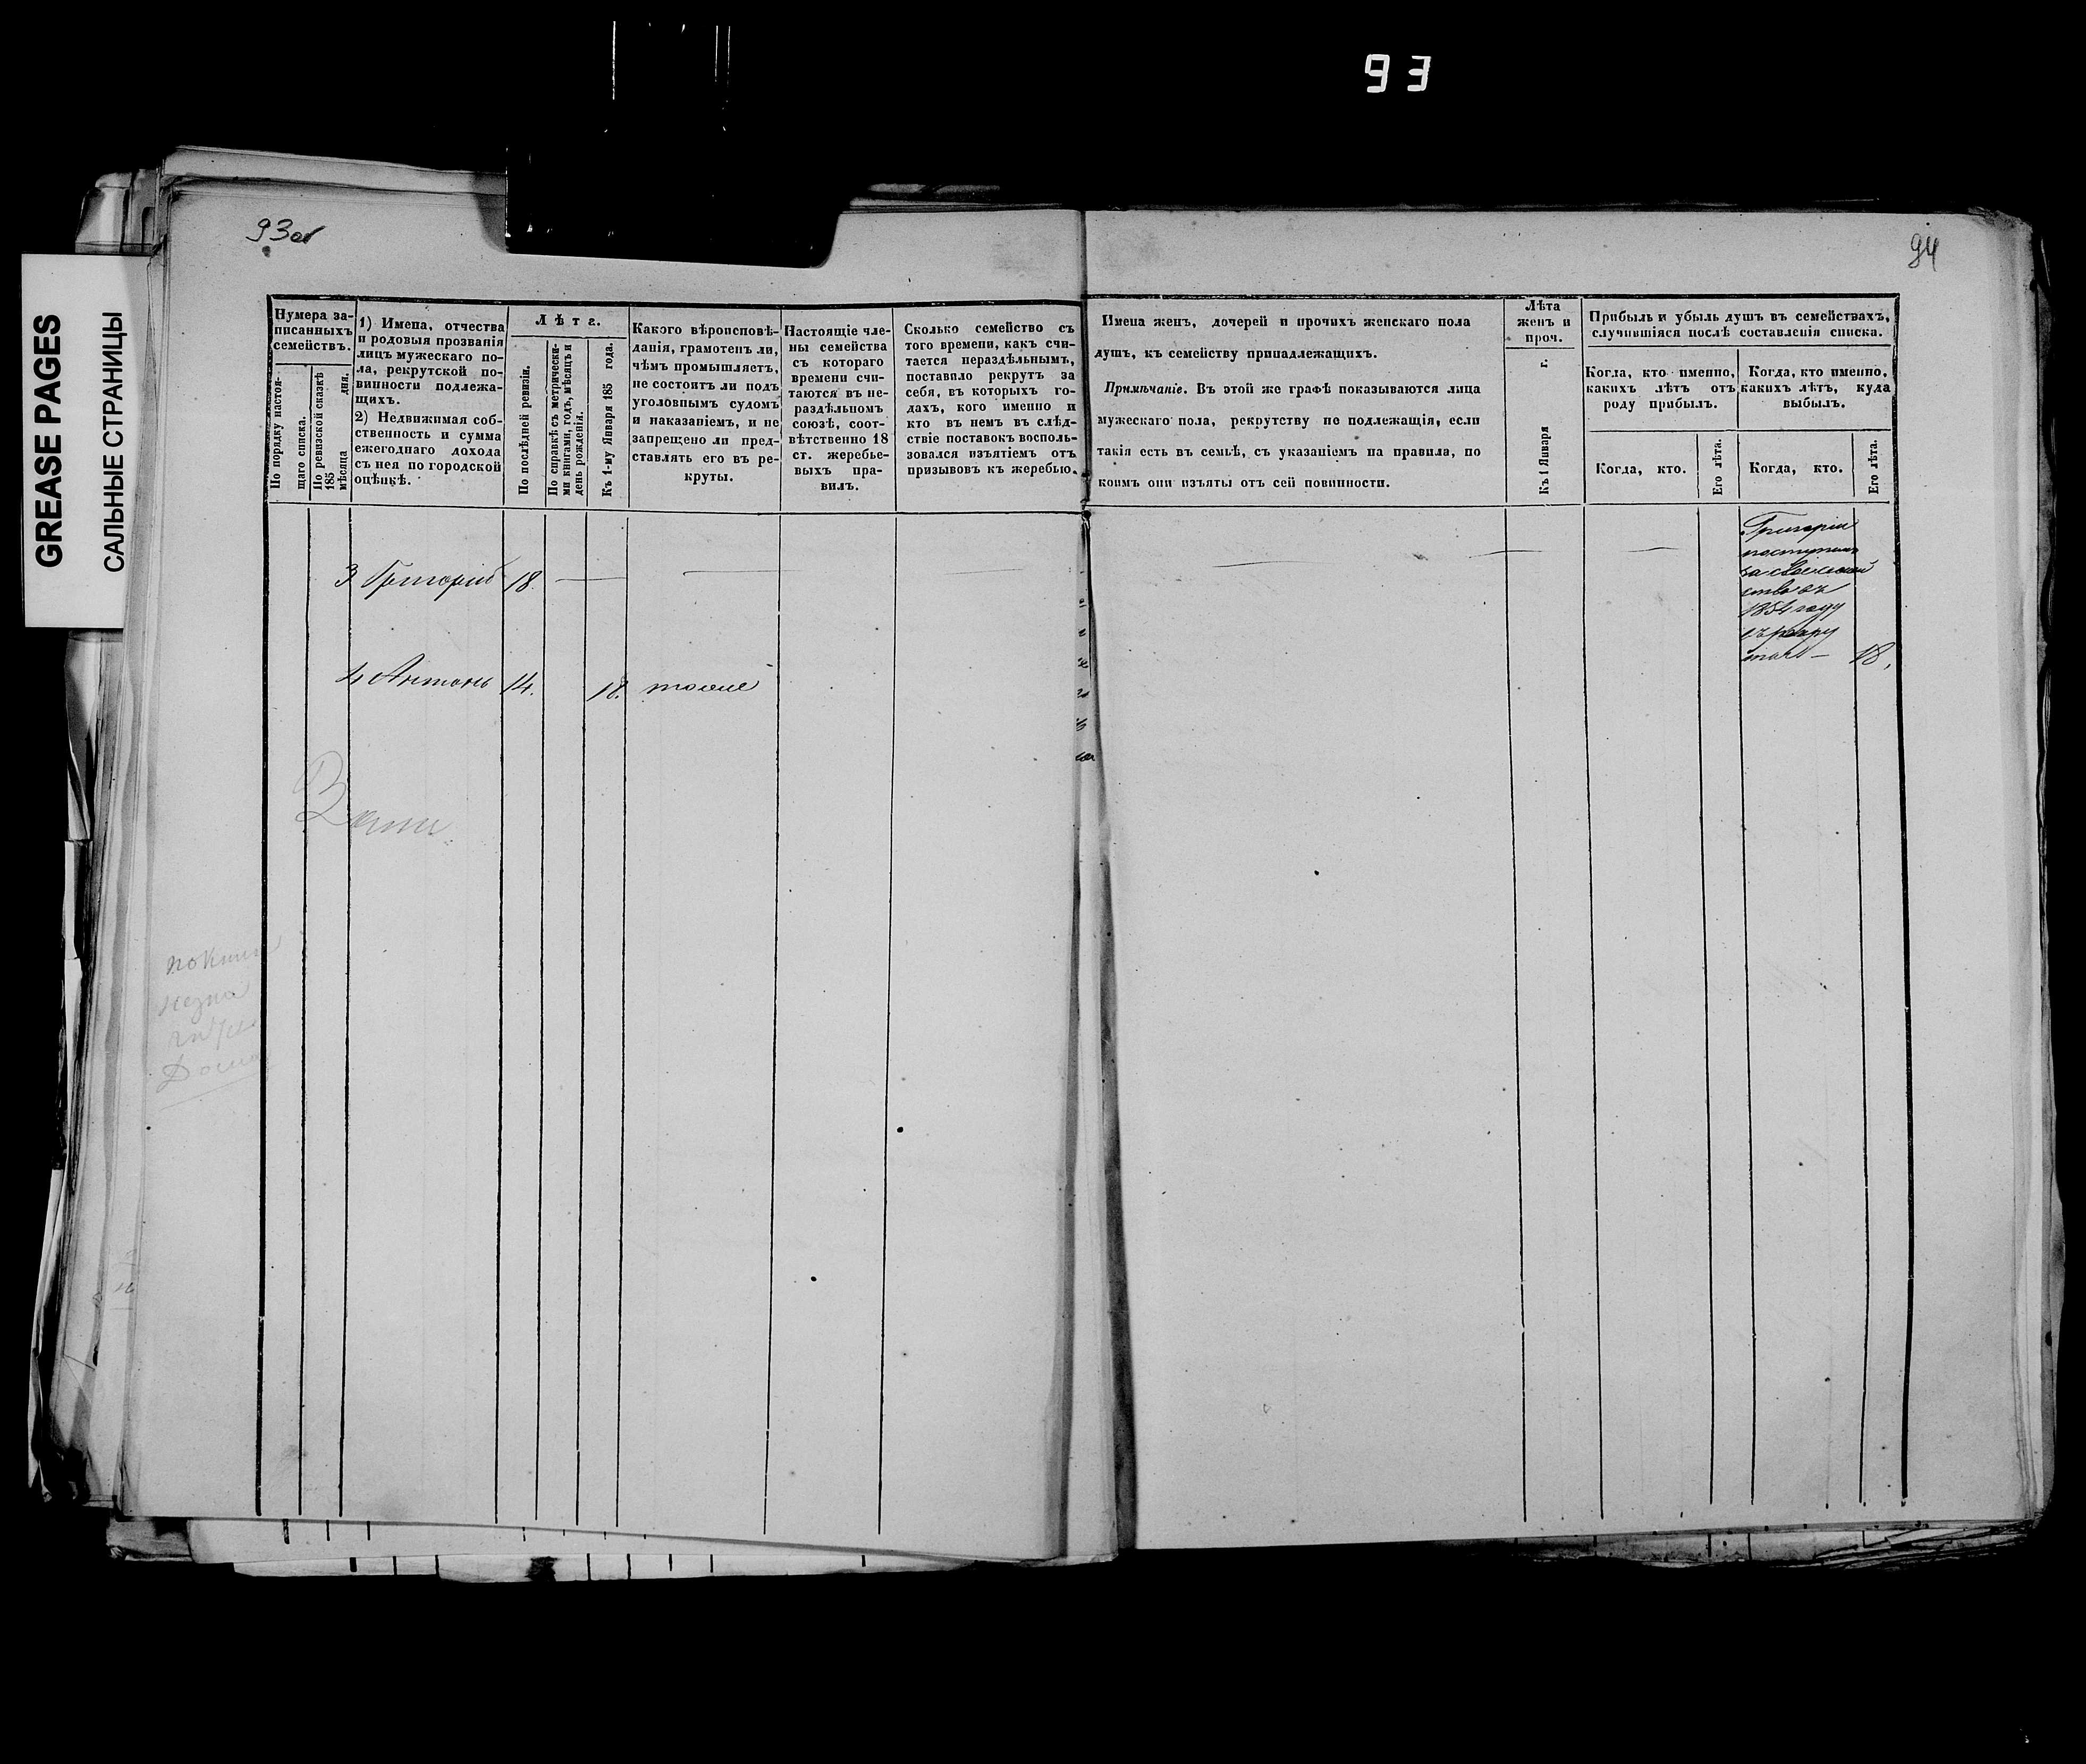 93
GREASE PAGES
САЛЬНЫЕ СТРАНИЦЫ
93об
94
Нумера за-
писанныхъ
семействъ.
По порядку настоя-
щаго списка.
По ревизской сказкѣ
185 дня.
мѣсяца
1) Имена, отчества
и родовыя прозванія
лицъ мужескаго по-
ла, рекрутской по-
винности подлежа-
щихъ.
2) Недвижимая соб-
ственность и сумма
ежегоднаго дохода
съ нея по городской
оцѣнкѣ.
Лѣтг.
По послѣдней ревизіи.
По справкѣ съ метрически-
ми книгами, годъ, мѣсяцъ и
день рожденія.
Къ 1-му Января 185 года.
Какого вѣроисповѣ-
данія, грамотенъ ли,
чѣмъ промышляетъ,
не состоитъ ли подъ
уголовнымъ судомъ
и наказаніемъ, и не
запрещено ли пред-
ставлять его въ ре-
круты.
Настоящіе чле-
ны семейства
съ котораго
времени счи-
таются въ не-
раздѣльномъ
союзѣ, соот-
вѣтственно 18
ст. жеребье-
выхъ пра-
вилъ.
Сколько семейство съ
того времени, какъ счи-
тается нераздѣльнымъ,
поставило рекрутъ за
себя, въ которыхъ го-
дахъ, кого именно и
кто въ немъ въ слѣд-
ствіе поставокъ восполь-
зовался изъятіемъ отъ
призывовъ къ жеребью.
Имена женъ, дочерей и прочихъ женскаго пола
душъ, къ семейству принадлежащихъ.
Примѣчаніе. Въ этой же графѣ показываются лица
мужескаго пола, рекрутству не подлежащія, если
такія есть въ семьѣ, съ указаніемъ на правила, по
коимъ они изъяты отъ сей повинности.
Лѣта
женъ и
проч.
Къ 1 Января г.
Прибыль и убыль душъ въ семействахъ,
случившіяся послѣ составленія списка.
Когда, кто именно,
какихъ лѣтъ отъ
роду прибылъ.
Когда, кто именно,
какихъ лѣтъ, куда
выбылъ.
Когда, кто.
Его лѣта.
Когда, кто.
Его лѣта.
3 Григорій 18.
Григорій
1854 году
18.
4 Антонъ 14. 18. тоже